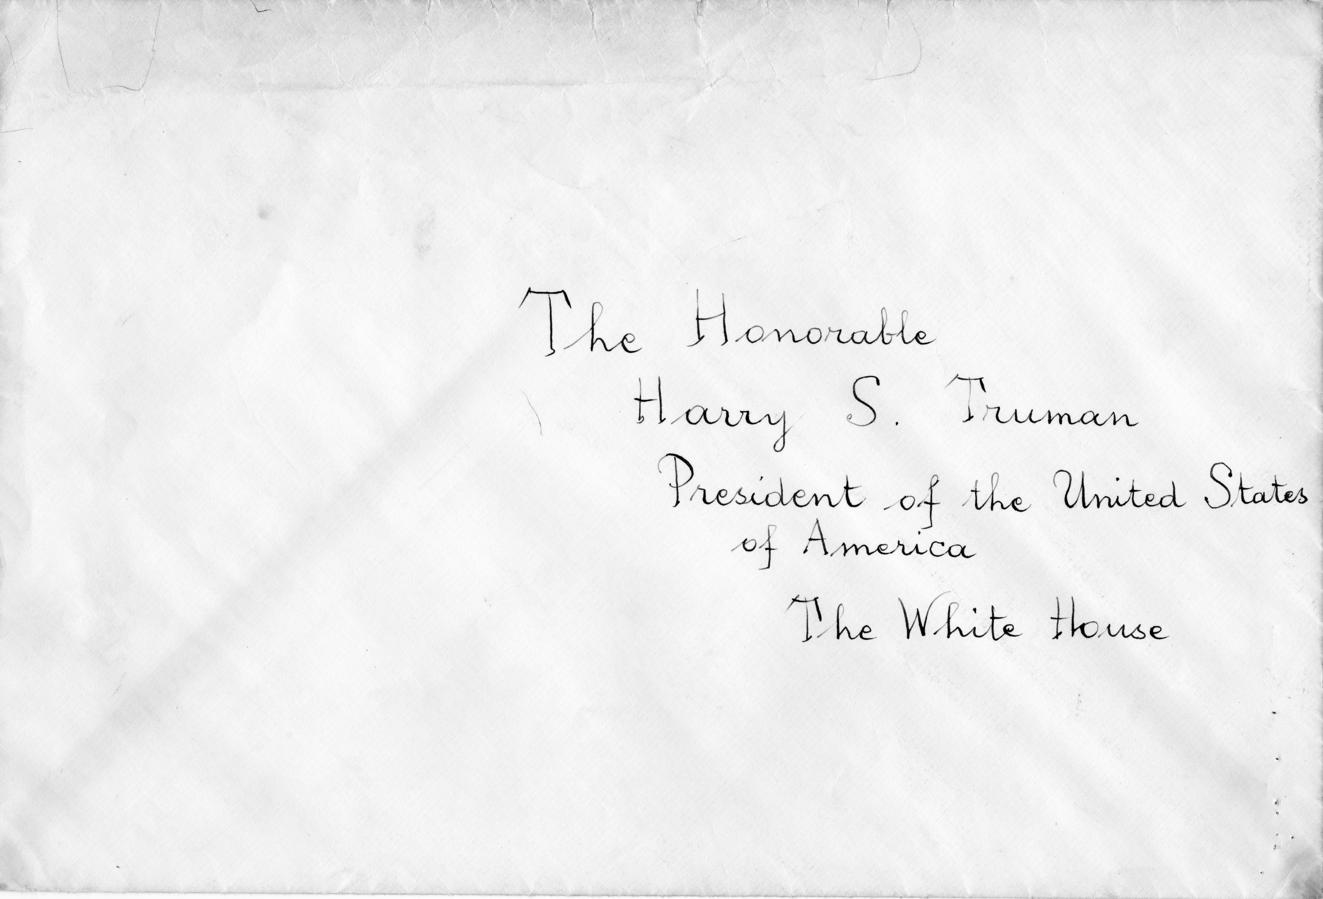 The Honorable
Harry S. Truman
President of the United States
of America
The White House